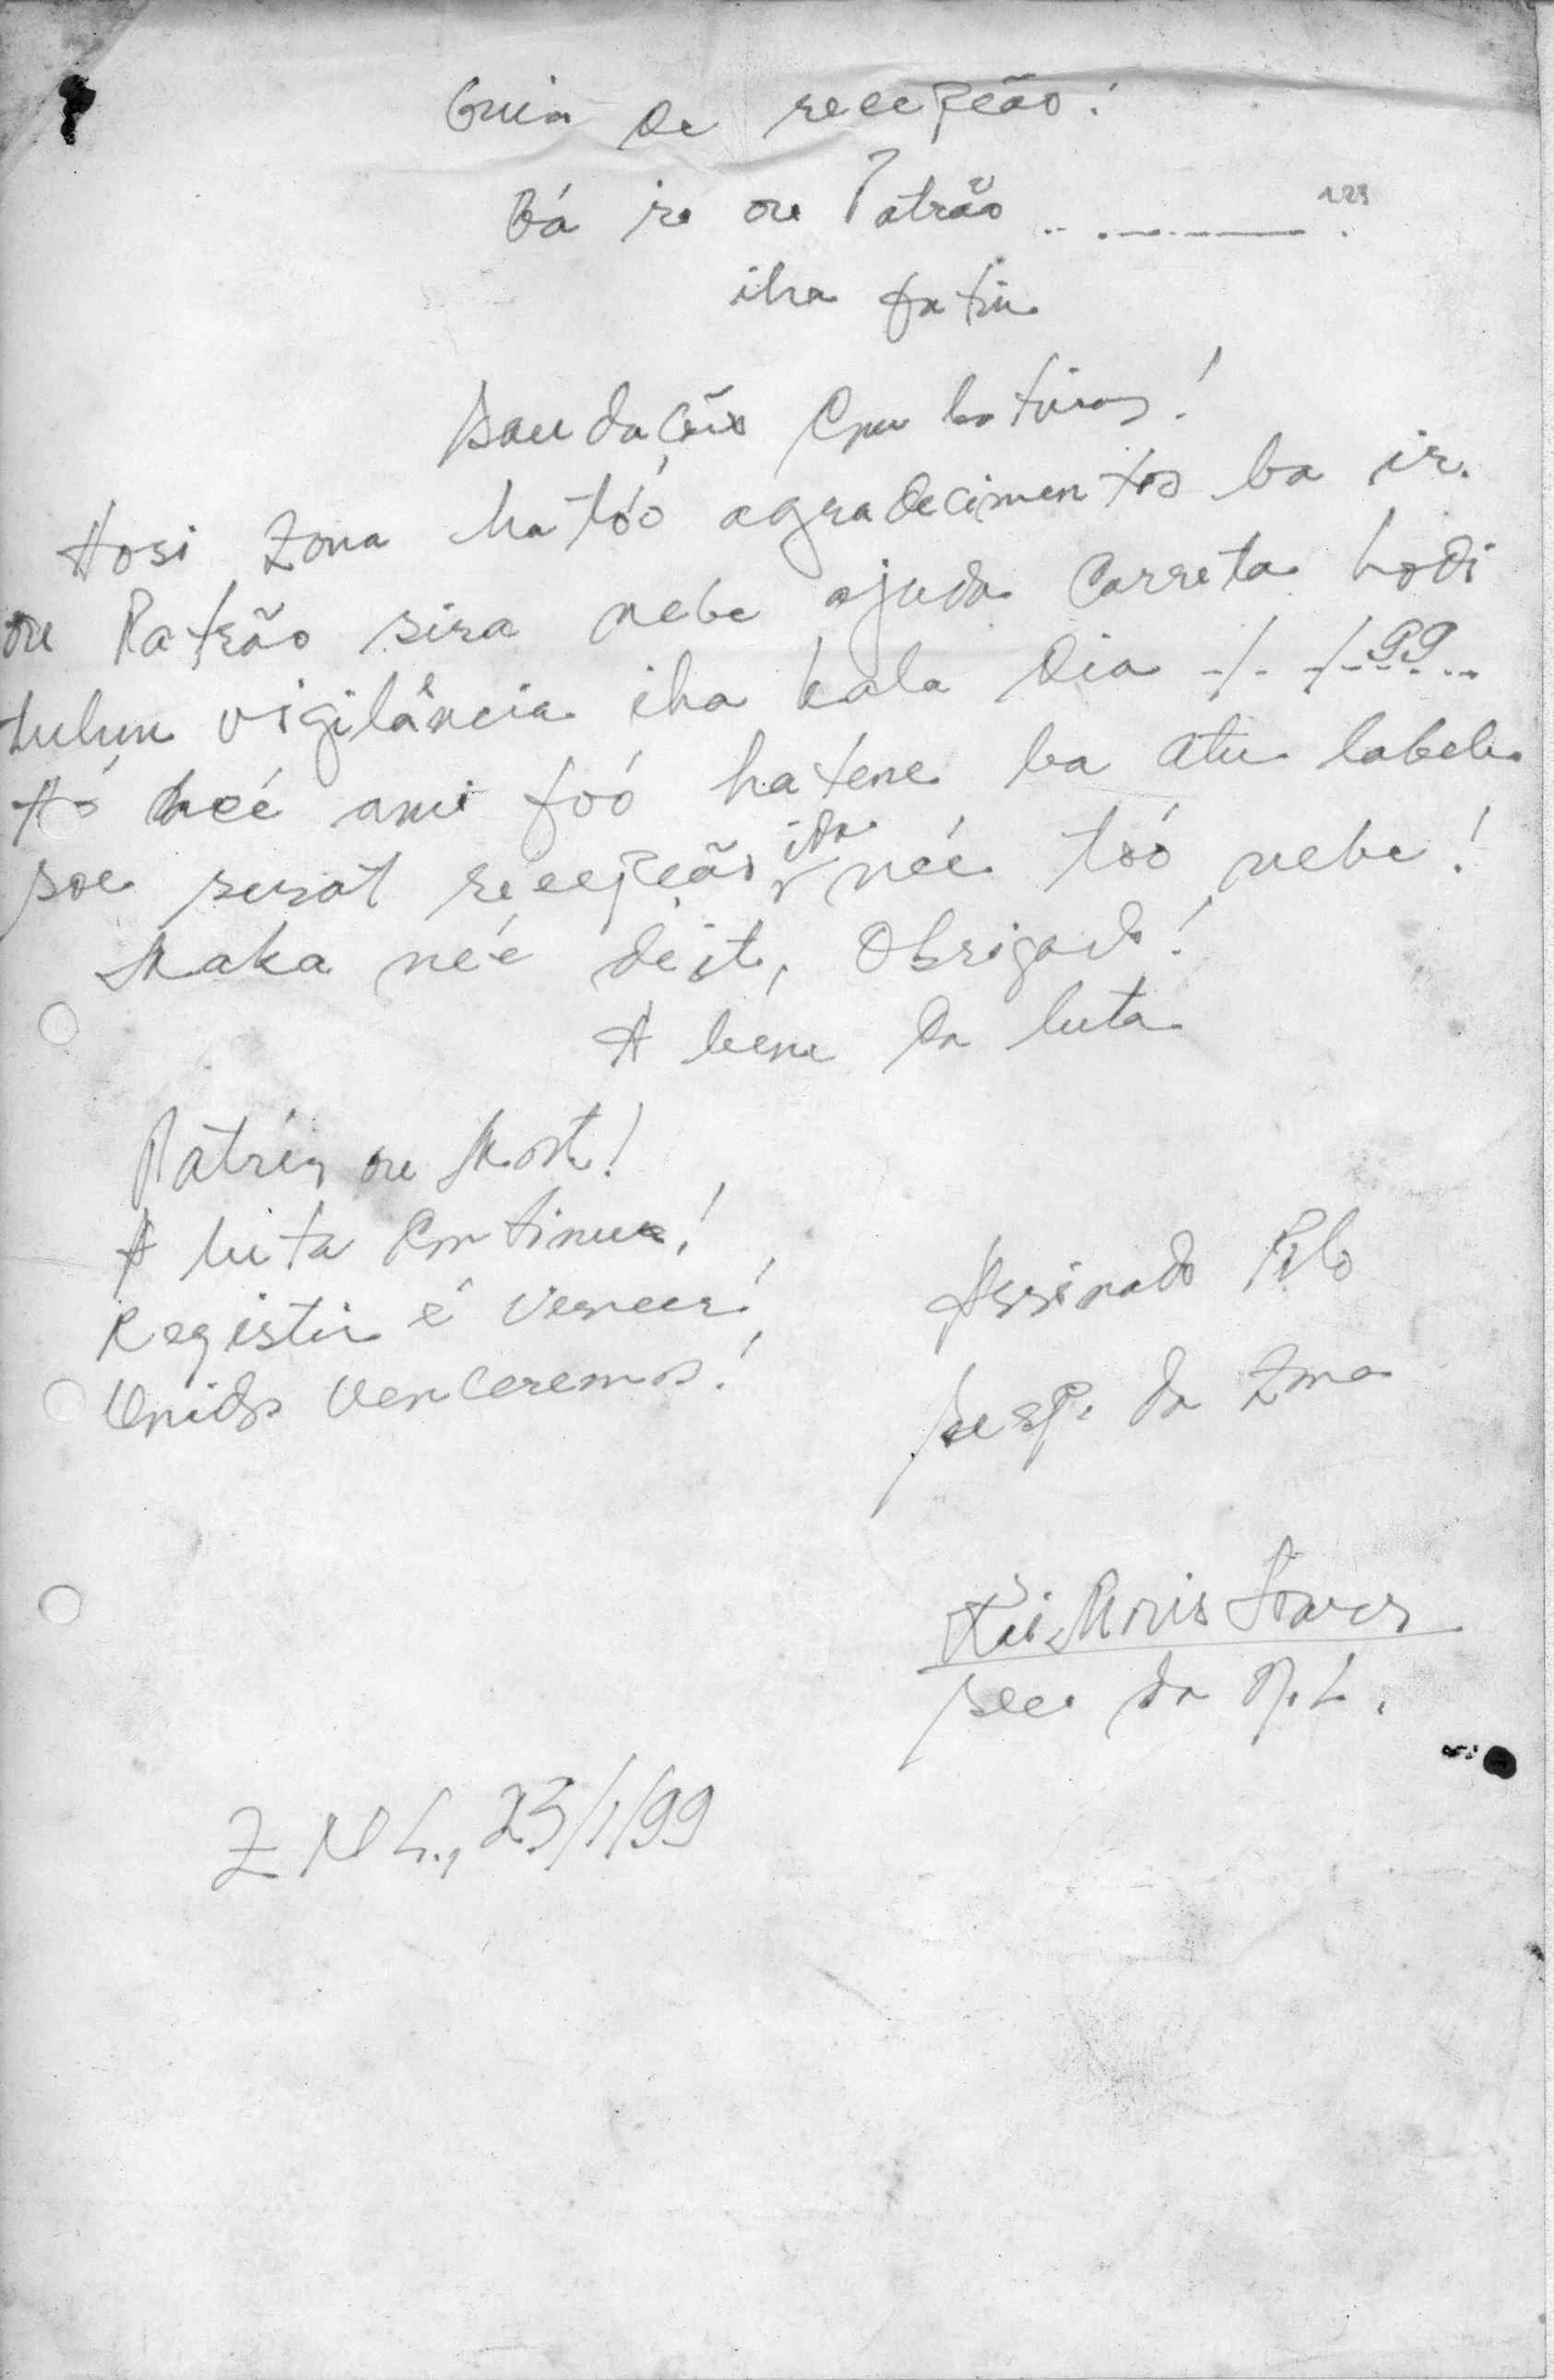 Guia de recepção!
Bá ir ou Patrão .. .———— . 129
iha fatin
Saudações Combativas!
Hosi Zona ható'o agradecimentos ba ir.
ou Patrão sira nebe ajuda Carreta hodi
tulun vigilância iha kala dia -/- -/-99...
ami fóo hatene ba atu labele
soe surat recepção ida née tóo nebe!
Maka né'e deit, Obrigado!
A bem da luta
Pátria ou Morte!
A luta Continua!
Registir é Vencer!
Unidos Venceremos!
Assinado Pelo
Resp. da Zona
Moris
Sec. da
Z N L., 23/1/99